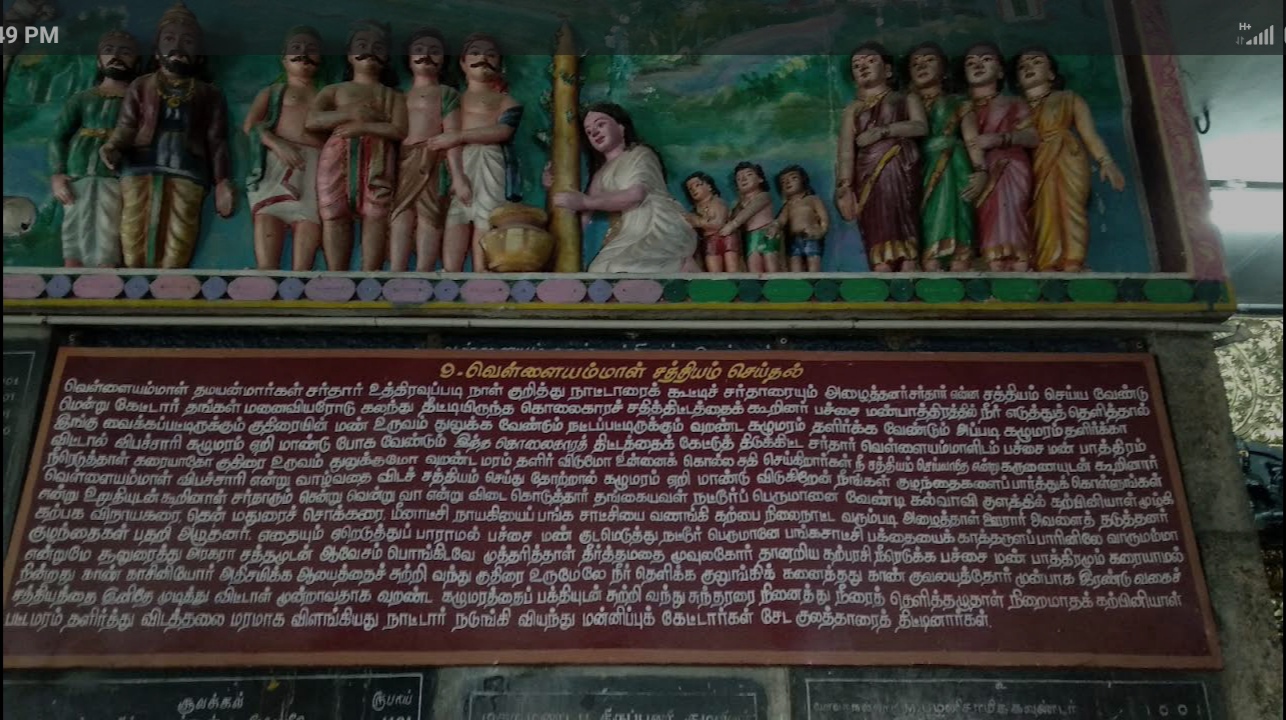 49 PM
H+
௨. வெள்ளையம்மாள் சத்தியம் செய்தல்
வெள்ளையம்மாள் தமயன்மார்கள் சர்தார் உத்திரவுப்படி நாள் குறித்து நாட்டாரைக் கூட்டிச் சர்தாரையும் அழைத்தனர் சர்தார் என்ன சத்தியம் செய்ய வேண்டு
மென்று கேட்டார் தங்கள் மனைவியரோடு கலந்து தீட்டியிருந்த கொலைகாரச் சதித்திட்டத்தைக் கூறினர் பச்சை மண்பாத்திரத்தில் நீர் எடுத்துத் தெளித்தால்
இங்கு வைக்கப்பட்டிருக்கும் குதிரையின் மண் உருவம் துலுக்க வேண்டும் நட்டப்பட்டிருக்கும் வறண்ட கழுமரம் தளிர்க்க வேண்டும் அப்படி கழுமரம் தளிர்க்கா
விட்டால் விபச்சாரி கழுமரம் ஏறி மாண்டு போக வேண்டும் இந்த கொலைகாரத் திட்டத்தைக் கேட்டுத் திடுக்கிட்ட சர்தார் வெள்ளையம்மாளிடம் பச்சை மண் பாத்திரம்
நீரெடுத்தாள் கரையாதோ குதிரை உருவம் துலுக்குமோ வறண்ட மரம் தளிர் விடுமோ உன்னைக் கொல்ல சதி செய்கிறார்கள் நீ சத்தியம் செய்யாதே என்று கருணையுடன் கூறினார்
வெள்ளையம்மாள் விபச்சாரி என்று வாழ்வதை விடச் சத்தியம் செய்து தோற்றால் கழுமரம் ஏறி மாண்டு விடுகிறேன் நீங்கள் குழந்தைகளைப் பார்த்துக் கொள்ளுங்கள்
என்று உறுதியுடன் கூறினாள் சர்தாரும் சென்று வென்று வா என்று விடை கொடுத்தார் தங்கையவள் நட்டூர்ப் பெருமானை வேண்டி கல்வாவி குளத்தில் கற்பினியாள் மூழ்கி
கற்பக விநாயகரை தென் மதுரைச் சொக்கரை மீனாட்சி நாயகியைப் பங்க சாட்சியை வணங்கி கற்பை நிலைநாட்ட வரும்படி அழைத்தாள் ஊரார் அவளைத் தடுத்தனர்
குழந்தைகள் பதறி அழுதனர். எதையும் ஏறெடுத்துப் பாராமல் பச்சை மண் குடமெடுத்து நட்டூர் பெருமானே பங்கசாட்சி பத்தையைக் காத்தருள பாரினிலே வாருமம்மா
என்றுமே சூலுரைத்து அரகரா சத்தமுடன் ஆவேசம் பொங்கிடவே முத்தரித்தாள் தீர்த்தமதை மூவுலகோர் தானறிய கற்பரசி நீரெடுக்க பச்சை மண் பாத்திரமும் கரையாமல்
நின்றது காண் காசினியோர் அதிசயிக்க ஆலயத்தைச் சுற்றி வந்து குதிரை உருமேலே நீர் தெளிக்க குலுங்கிக் கனைத்தது காண் குவலயத்தோர் முன்பாக இரண்டு வகைச்
சத்தியத்தை இனிதே முடித்து விட்டாள் மூன்றாவதாக வறண்ட கழுமரத்தைப் பக்தியுடன் சுற்றி வந்து சுந்தரரை நினைத்து நீரைத் தெளித்தழுதாள் நிறைமாதக் கற்பினியாள்
பட்டமரம் தளிர்த்து விடத்தலை மரமாக விளங்கியது நாட்டார் நடுங்கி வியந்து மன்னிப்புக் கேட்டார்கள் சேட குலத்தாரைத் திட்டினார்கள்.
ரூபாய்
1001